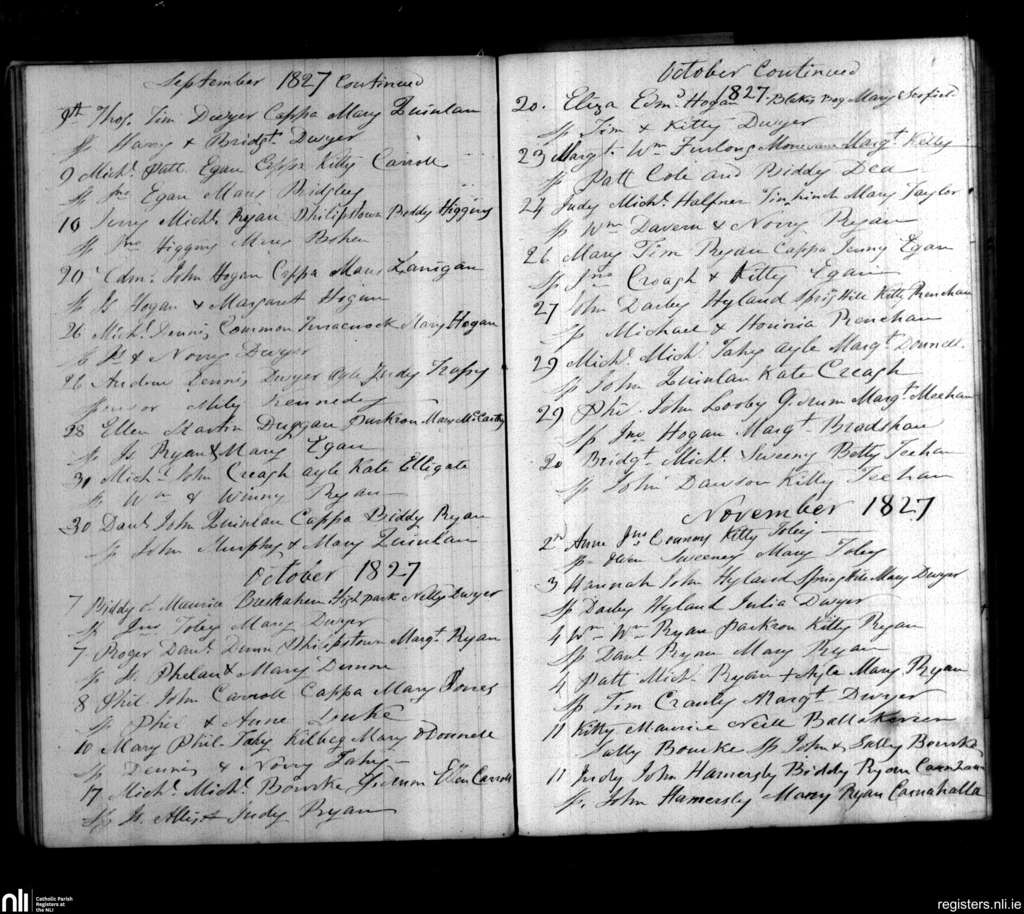 September 1827 Continued
9th Thos. Tim Dwyer Cappa Mary Quinlan
Sp Harry & Bridgt. Dwyer
9 Michl. Patt Egan Cappa Kitty Carroll
Sp Jno Egan Mary Bridgley
10 Jerry Michl. Ryan Philipstown Biddy Higgins
Sp Jno Higgins Mary
20 Edmd. John Hogan Cappa Mary Lanigan
Sp Js Hogan & Margaret Hogan
26 Michl. Dennis Common Mary Hogan
& Norry Dwyer
26 Andrew Dennis Dwyer Ayle Judy Trassy
Sponsor Miley Kennedy
28 Ellen Martin Duggan Mary McCarthy
Sp Js Ryan & Mary Egan
30 Michl. John Creagh Ayle Kate Elligate
Sp Wm & Winny Ryan
30 Danl. John Quinlan Cappa Biddy Ryan
Sp John Murphy & Mary Quinlan
October 1827
7 Biddy of Maurice High park Nelly Dwyer
Sp Jno Toley Mary Dwyer
7 Roger Danl. Philipstown Margt. Ryan
Sp Js. Phelan & Mary
8 Phil John Carroll Cappa Mary Jones
Sp Phil & Anne
10 Mary Phil Fahy Kilbeg Mary O Donnell
Sp Dennis & Norry Fahy
17 Michl. Michl. Bourke Ellen Carroll
Sp Js. & Judy Ryan
October Continued
1827
20. Eliza Edmd. Hogan Mary
Sp Tim & Kitty Dwyer
23 Margt. Wm Furlong Margt. Kelly
Sp Patt Cole and Biddy Dea
24 Judy Michl. Halfner Mary Taylor
Sp Wm Davern & Norry Ryan
26 Mary Tim Ryan Cappa Jenny Egan
Sp Jno Croagh & Kitty Egan
27 John Darby Hyland Spring Hill Kitty Renehan
Sp Michael & Honoria Renehan
29 Michl. Michl Fahy Ayle Margt. Donnell
Sp John Quinlan Kate Creagh
29 Phil. John Looby Margt. Meehan
Sp Jno Hogan Margt. Bradshaw
30 Bridgt. Michl. Sweeny Betty Teehan
Sp John Dawson Kitty Teehan
November 1827
2nd Anne Jno Connors Kitty Toley
Sp Sweeney Mary Toley
3 Hannah John Hyland Spring Hill Mary Dwyer
Sp Darby Hyland Julia Dwyer
4 Wm Wm Ryan Kitty Ryan
Sp Danl. Ryan Mary Ryan
4 Patt Michl. Ryan Ayle Mary Ryan
Sp Tim Crauly Margt Dwyer
11 Kitty Maurice Neill
Sally Bourke Sp John & Sally Bourke
11 Judy John Hamersly Biddy Ryan
Sp. John Hamersly Mary Ryan Carnahalla
nli
Catholic Parish
Registers at
the NLI
registers.nli.ie